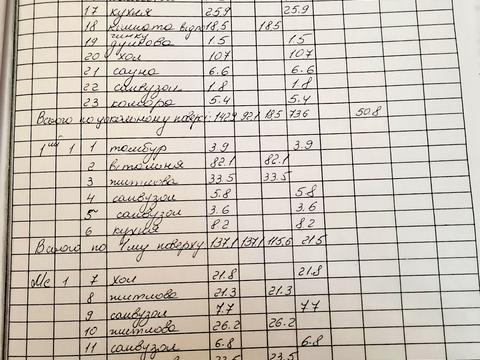 17 кухня 25.9 25.9
18 кімната відпо чинку 18.5 18.5
19 душова 1.5 1.5
20 хол 10.7 10.7
21 сауна 6.6 6.6
22 санвузол 1.8 1.8
23 комора 5.4 5.4
Всього по цокольному повер: 142.9 92.1 18.5 73.6 50.8
1ий 1 1 тамбур 3.9 3.9
2 вітальня 82.1 82.1
3 житлова 33.5 33.5
4 санвузол 5.8 5.8
5 санвузол 3.6 3.6
6 кухня 8.2 8.2
Всього по 1му поверху 137.1 137.1 115.6 21.5
Мс 1 7 хол 21.8 21.8
8 житлова 21.3 21.3
9 санвузол 7.7 7.7
10 житлова 26.2 26.2
11 санвузол 6.8 6.8
23.5